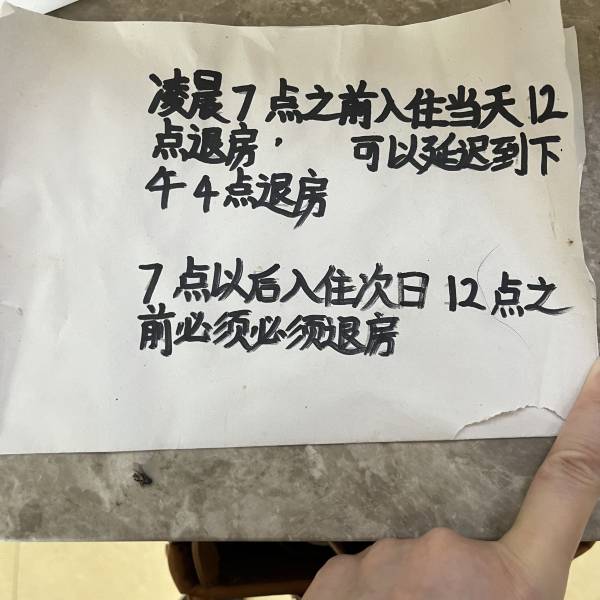 凌晨7点之前入住当天12
点退房, 可以延迟到下
午4点退房
7点以后入住次日12点之
前必须必须退房